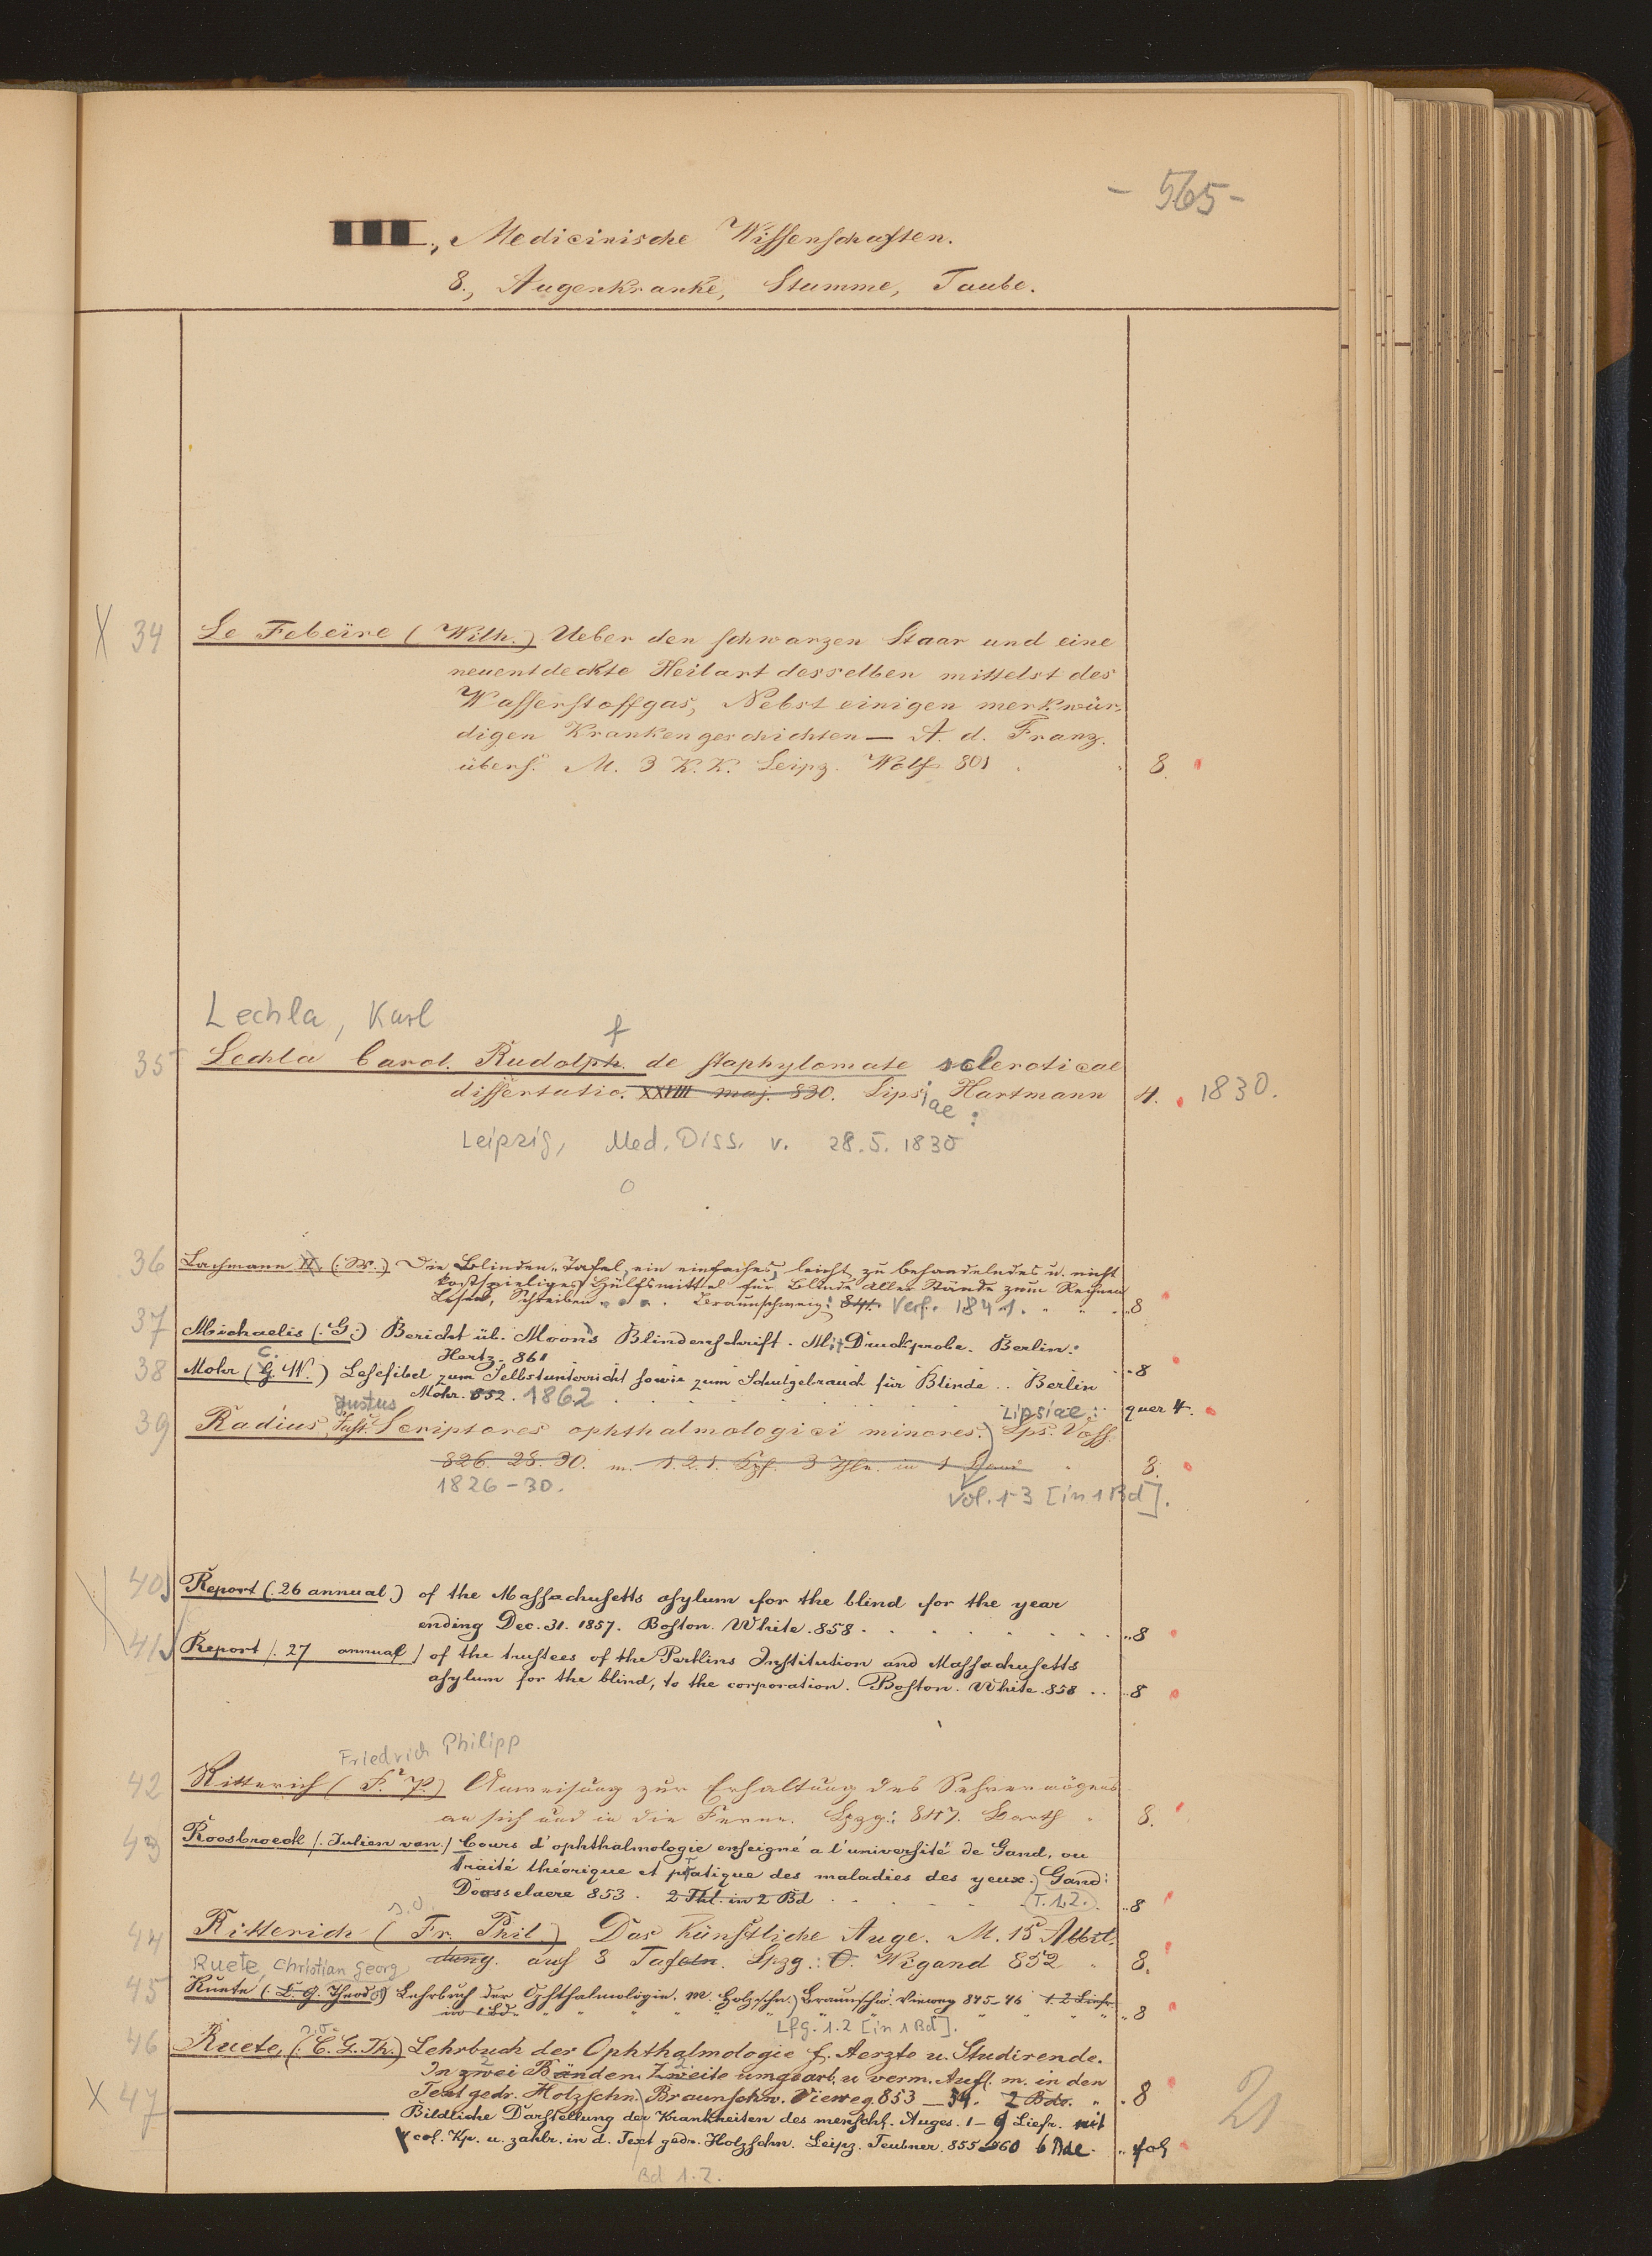 - 565 -
III., Medicinische Wissenschaften.
8., Augenkranke, Stumme, Taube.
X 34 Le Febeüre (Wilh.) Ueber den schwarzen Staar und eine
neuentdeckte Heilart desselben mittelst des
Wasserstoffgas, Nebst einigen merkwür-
digen Krankengeschichten — A. d. Franz.
übers. M. 3 K. K. Leipz. Wolf 801 8.
Lechla, Karl
f
35 Lechla Carol. Rudolph. de staphylomate scleroticae
dissertatio. XXVIII maj. 830. Lipsiae: Hartmann 4. 1830.
Leipzig, Med. Diss. v. 28.5.1830
36 Lachmann II. (W.) Die Blinden-Tafel, ein einfaches, leicht zu behandelndes u. nicht
kostspieliges Hülfsmittel für Blinde aller Stände zum Rechnen
Lesen, Schreiben Braunschweig: 841. Verf. 1841. 8
37 Michaelis (G.) Bericht üb. Moon's Blindenschrift. Mit Druckprobe. Berlin:
Hertz. 861 8
38 Mohr (G. W.) Lesefibel zum Selbstunterricht sowie zum Schulgebrauch für Blinde .. Berlin
C.
Mohr. 852. 1862 quer 4.
Justus Lipsiae:
39 Radius, Just. Scriptores ophthalmologici minores. Lps. Voss.
826. 28. 30. m. 1. 2. 1. Kpf. 3 Thle. in 1 Band 8.
1826-30. Vol. 1-3 [in 1 Bd].
40 Report (26 annual.) of the Massachusetts asylum for the blind for the year
ending Dec. 31. 1857. Boston. White. 858 8
41 Report (27 annual) of the trustees of the Perkins Institution and Massachusetts
asylum for the blind, to the corporation. Boston. White. 858 .. 8
Friedrich Philipp
42 Ritterich (F. P.) Anweisung zur Erhaltung des Sehvermögens
an sich und in die Ferne. Lpzg: 847. Barth 8.
43 Roosbroeck (Julien van.) Cours d'ophthalmologie enseigné a l'université de Gand, ou
traité théorique et pratique des maladies des yeux. Gand:
Doosselaere 853. 2 Thl. in 2 Bd (T. 1.2.) 8
s.o.
44 Ritterich (Fr. Phil.) Das künstliche Auge. M. 15 Abbil-
dung. auf 3 Tafeln. Lpzg.: O. Wigand 852 8.
Ruete, Christian Georg
45 Ruete (C. G. Theodor) Lehrbuch der Ophthalmologie. M. Holzschn. Braunschw. Vieweg 845-46 1. 2 Liefr.
in 1 Bd. 8
Lfg. 1.2 [in 1 Bd].
s.o.
46 Ruete, (C. G. Th.) Lehrbuch der Ophthalmologie f. Aerzte u. Studirende.
In zwei Bänden. Zweite umgearb. u verm. Aufl. m. in den
Text gedr. Holzschn. Braunschw. Vieweg 853 — 54. 2 Bde. 8
X 47 ——— Bildliche Darstellung der Krankheiten des menschl. Auges. 1 — 9 Liefr. mit
col. Kp. u. zahlr. in d. Text gedr. Holzschn. Leipz. Teubner. 855-860 6 Bde. fol
Bd 1.2.
21